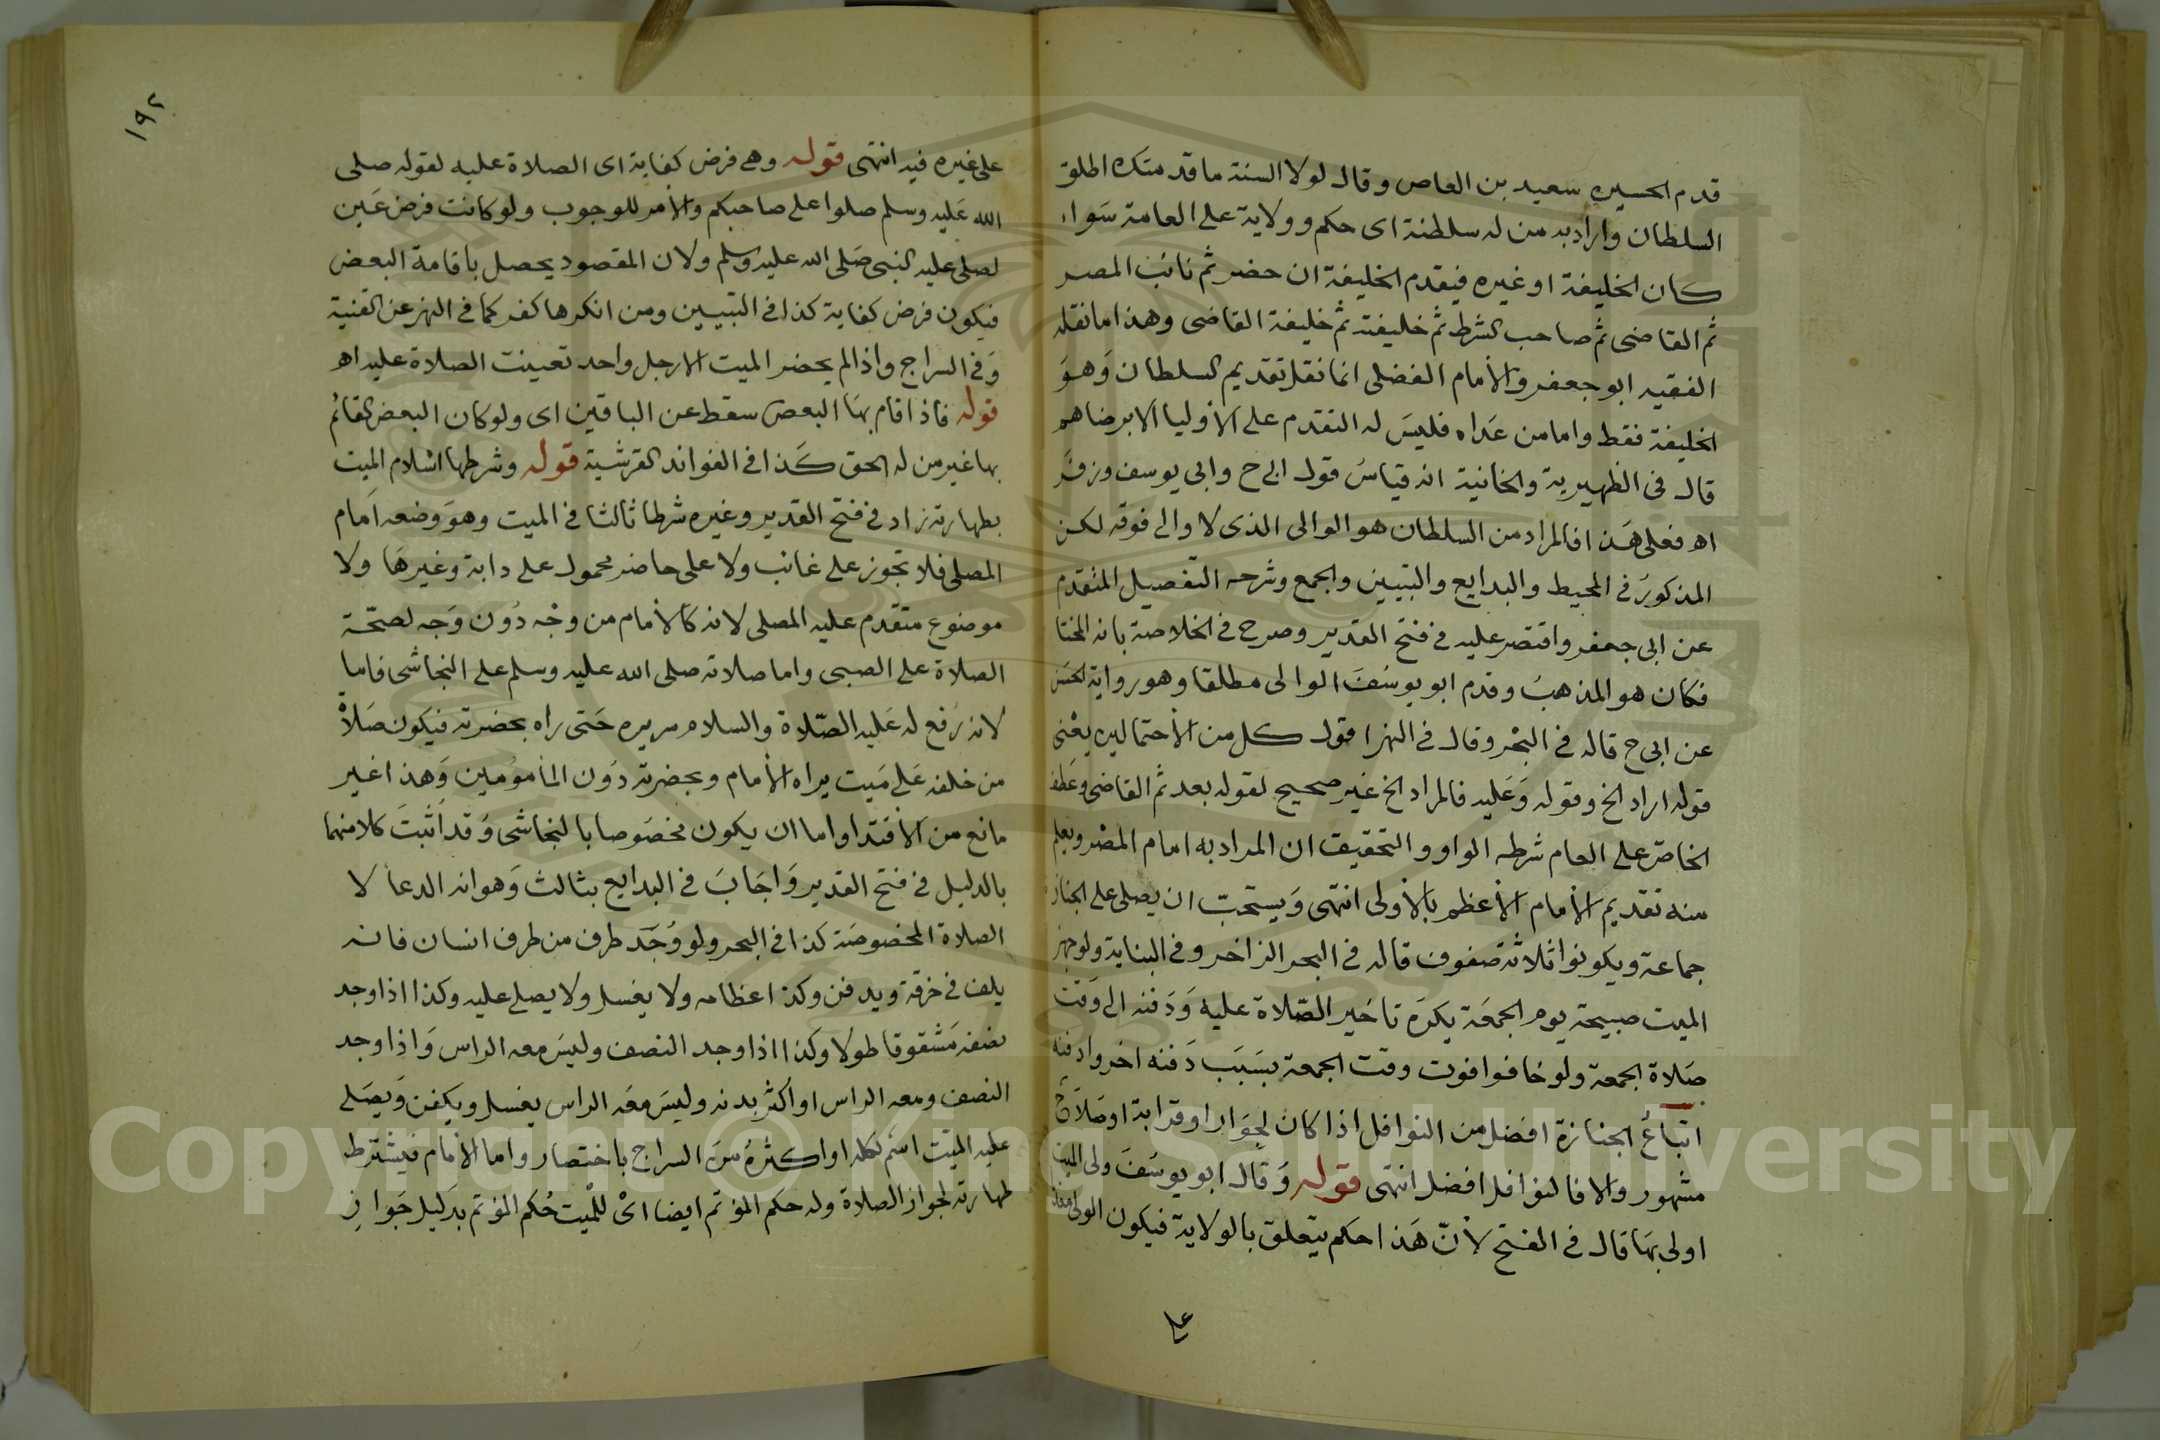 قدم الحسين سعيد بن العاص وقال لولا السنة ما قدمتك اطلق
السلطان واراد به من له سلطنة اى حكم وولاية على العامة سَواء
كان الخليفة او غيره فيقدم الخليفة ان حضر ثم نائب المصر
ثم القاضى ثم صاحب الشرط ثم خليفته ثم خليفة القاضى وهذا ما نقله
الفقيه ابو جعفر والأمام الفضلى انما نقل تقديم السلطان وَهوَ
الخليفة فقط واما من عَداه فليسَ له التقدم على الأوليا الا برضاهم
قال فى الظهيرية والخانية انه قياسُ قول ابى ح وابى يوسف وزفَر
اه فعلى هَذا فالمراد من السلطان هو الوالى الذى لا والى فوقه لكن
المذكورُ فى المحيط والبدايع والتبيين والجمع وشرحه التفصيل المتقدم
عن ابى جعفر واقتصر عليه فى فتح القدير وصرح فى الخلاصة بانه المختا
فكان هو المذهبُ وقدم ابو يوسُفَ الوالى مطلقا وهو رواية الحسَن
عن ابى ح قاله فى البحْر وقال فى النهر اقول كل من الأحتمالين يعْنى
قوله اراد الخ وقوله وَعَليه فالمراد الخ غير صحيح لقوله بعد ثم القاضى وعَطف
الخاصّ على العام شرطه الواو والتحقيق ان المراد به امام المصْر ويعلم
منه تقديم الأمام الأعظم بالأولى انتهى وَيستحبّ ان يصلى على الجناز
جماعة ويكونوا ثلاثة صفوف قاله فى البحر الزاخر وفى البناية ولو جهز
الميت صبيحة يوم الجمعَة يكرَه تاخَير الصّلاة عليه وَدَفنه الى وَقت
صَلاة الجمعة ولو خافوا فوت وقت الجمعة بسَبَب دَفنه اخروا دفنه
اتباعُ الجنازة افضل من النوافل اذا كان لجوَار او قرابة او صَلاح
مشهور والا فالنوافل افضل انتهى قوله وَقال ابو يوسُفَ ولى الميت
اولى بهَا قال فى الفتح لأنّ هَذا حكم يتعلق بالولاية فيكون الولى مقدما
على
١٩٢
على غيره فيه انتهى قوله وهى فرض كفاية اى الصلاة عليه لقوله صلى
الله عَليه وسلم صلوا على صاحبكم والأمر للوجوب ولو كانت فرض عَين
لصلى عليه النبى صَلى الله عليه وسلم ولان المقصود يحصل باقامة البعض
فيكون فرض كفاية كذا فى التبيين ومن انكرها كفر كما فى النهر عن القنية
وَفى السراج واذا لم يحضر الميت الا رجل واحد تعينت الصلاة عليه اه
قوله فاذا قام بهَا البعض سقط عن الباقين اى ولو كان البعض القائم
بها غير من له الحق كَذا فى الفوائد القرشية قوله وشرطها اسْلام الميت
بطهارته زاد فى فتح القدير وغيره شرطا ثالثا فى الميت وهوَ وَضعه اَمام
المصلى فلا تجوز على غائب ولا على حاضر محمول على دابة وغيرهَا ولا
موضوع متقدم عليه المصلى لانه كالأمام من وجْه دُون وَجه لصحّة
الصلاة على الصبى واما صلاته صلى الله عليه وسلم على النجاشى فاما
لانه رُفع له عَليه الصّلاة والسلام سريره حَتى راه بحضرته فيكون صَلاة
من خلفه عَلى مَيت يراه الأمام وبحضرته دوُن المأمومين وَهذا غير
مانع من الأقتدا واما ان يكون مخصَوصا بالنجاشى وَقد اَثبتَ كلا منهما
بالدليل فى فتح القدير وَاجَابَ فى البدايع بثالث وَهو انه الدعا لا
الصلاة المخصوصَة كذا فى البحر ولو وُجَد طرف من طرف انسان فانه
يلف فى خرقة ويدفن وكذا عظامه ولا يغسل ولا يصلى عليه وكذا اذا وجد
نصفه مَشقوقا طولا وكذا اذا وجد النصف وليسَ معه الراس وَاذا وجد
النصف ومعه الراس او اكثر بدنه وليسَ معَه الراس يغسل ويكفن وَيصَلى
عليه الميّت اسْم لكله او اكثرهُ منَ السراج باختصار واما الأمام فيشترط
طهارته لجواز الصلاة وله حكم المؤتم ايضا اىْ للميت حُكم المؤتم بدَليل جَواز